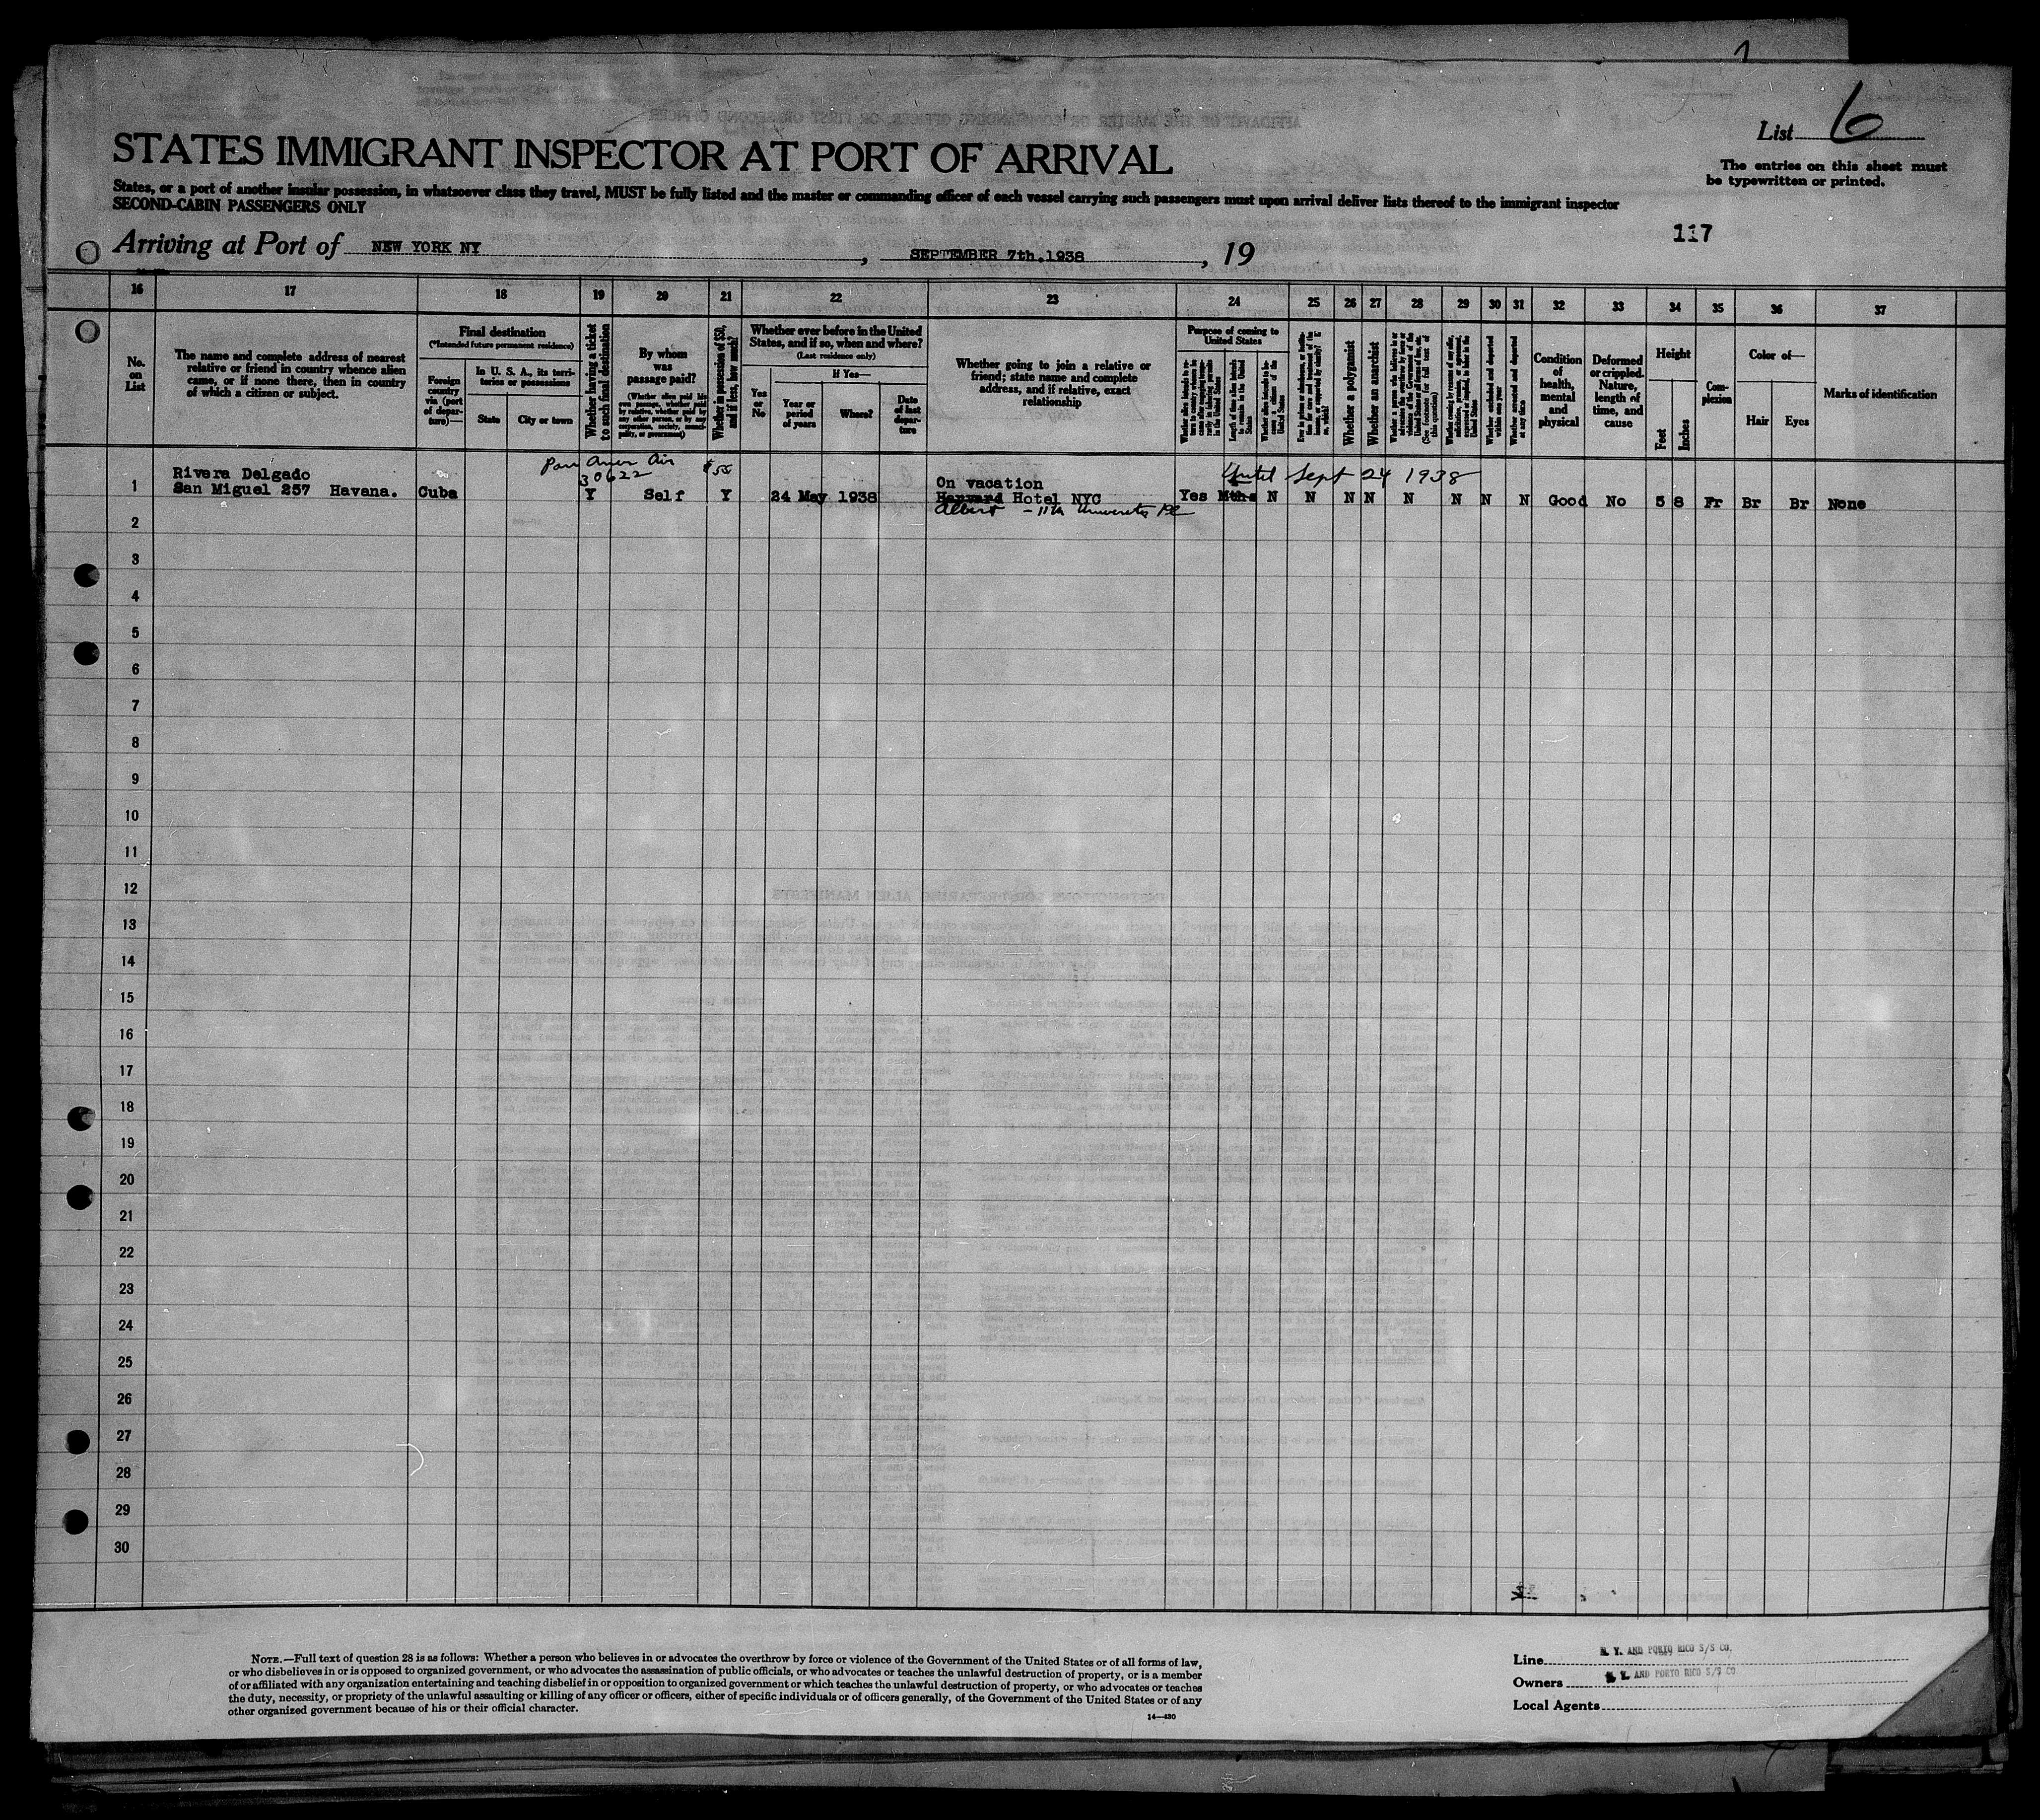 List 6
The entries on this sheet must
be typewritten or printed.
STATES IMMIGRANT INSPECTOR AT PORT OF ARRIVAL
States, or a port of another insular possession, in whatsoever class they travel, MUST be fully listed and the master or commanding officer of each vessel carrying such passengers must upon arrival deliver lists thereof to the immigrant inspector
SECOND-CABIN PASSENGERS ONLY
117
Arriving at Port of NEW YORK NY, SEPTEMBER 7th.1938, 19
16 17 18 19 20 21 22 23 24 25 26 27 28 29 30 31 32 33 34 35 36 37
No.
on
List
The name and complete address of nearest
relative or friend in country whence alien
came, or if none there, then in country
of which a citizen or subject.
Final destination
(*Intended future permanent residence)
Foreign
country
via (port
of depar-
ture)—
In U. S. A., its terri-
tories or possessions
State
City or town
Whether having a ticket
to such final destination
By whom
was
passage paid?
(Whether alien paid his
own passage, whether paid
by relative, whether paid by
any other person, or by any
corporation, society, munici-
pality, or government)
Whether in possession of $50,
and if less, how much?
Whether ever before in the United
States, and if so, when and where?
(Last residence only)
Yes
or
No
If Yes—
Year or
period
of years
Where?
Date
of last
depar-
ture
Whether going to join a relative or
friend; state name and complete
address, and if relative, exact
relationship
Purpose of coming to
United States
Length of time alien intends
to remain in the United
States
Whether alien intends to be-
come a citizen of the
United States
Whether a polygamist
Whether an anarchist
Whether excluded and deported
within one year
Whether arrested and deported
at any time
Condition
of
health,
mental
and
physical
Deformed
or crippled.
Nature,
length of
time, and
cause
Height
Feet
Inches
Com-
plexion
Color of—
Hair
Eyes
Marks of identification
Pan Amer Air
30622
$55
Until Sept 24 1938
Rivera Delgado
On vacation
1 San Miguel 257 Havana. Cuba Y Self Y 24 May 1938 Harvard Hotel NYC Yes Mths N N N N N N N N Good No 5 8 Fr Br Br None
Albert - 11th University Pl
2
3
4
5
6
7
8
9
10
11
12
13
14
15
16
17
18
19
20
21
22
23
24
25
26
27
28
29
30
NOTE.—Full text of question 28 is as follows: Whether a person who believes in or advocates the overthrow by force or violence of the Government of the United States or of all forms of law,
or who disbelieves in or is opposed to organized government, or who advocates the assassination of public officials, or who advocates or teaches the unlawful destruction of property, or is a member
of or affiliated with any organization entertaining and teaching disbelief in or opposition to organized government or which teaches the unlawful destruction of property, or who advocates or teaches
the duty, necessity, or propriety of the unlawful assaulting or killing of any officer or officers, either of specific individuals or of officers generally, of the Government of the United States or of any
other organized government because of his or their official character.
14—430
Line N. Y. AND PORTO RICO S/S CO.
Owners N. Y. AND PORTO RICO S/S CO
Local Agents